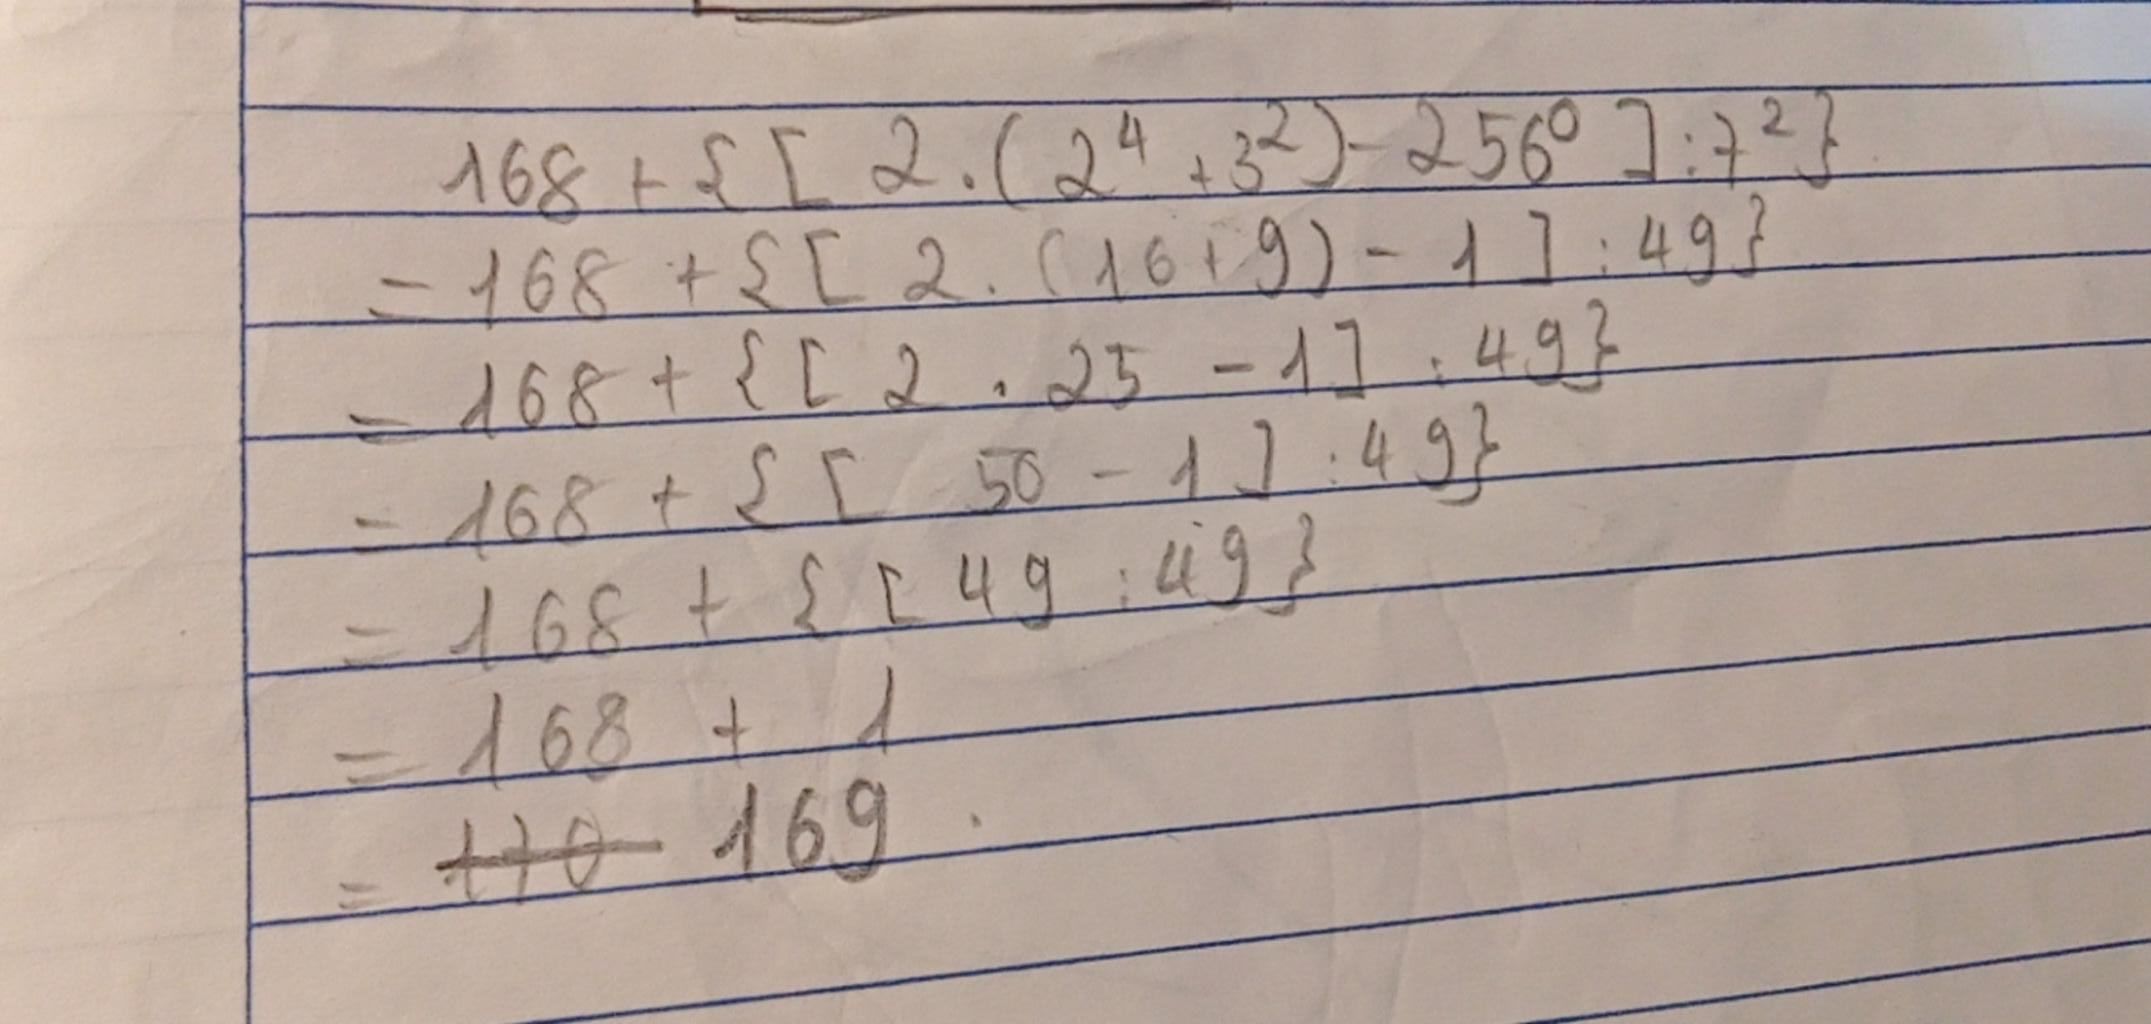 168 + { [ 2 . ( 2⁴ + 3² ) - 256⁰ ] : 7² }
= 168 + { [ 2 . ( 16 + 9 ) - 1 ] : 49 }
= 168 + { [ 2 . 25 - 1 ] : 49 }
= 168 + { [ 50 - 1 ] : 49 }
= 168 + { [ 49 : 49 }
= 168 + 1
= 169